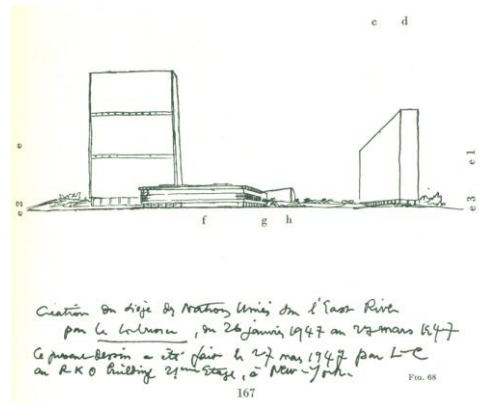 c d
e
e 1
e 2
e 3
f g h
Création du siège des Nations Unies sur l'East River
par Le Corbusier, du 26 janvier 1947 au 27 mars 1947
Ce présent dessin a été fait le 27 mars 1947 par L-C
au RKO Building 21ème Etage, à New-York.
FIG. 68
167